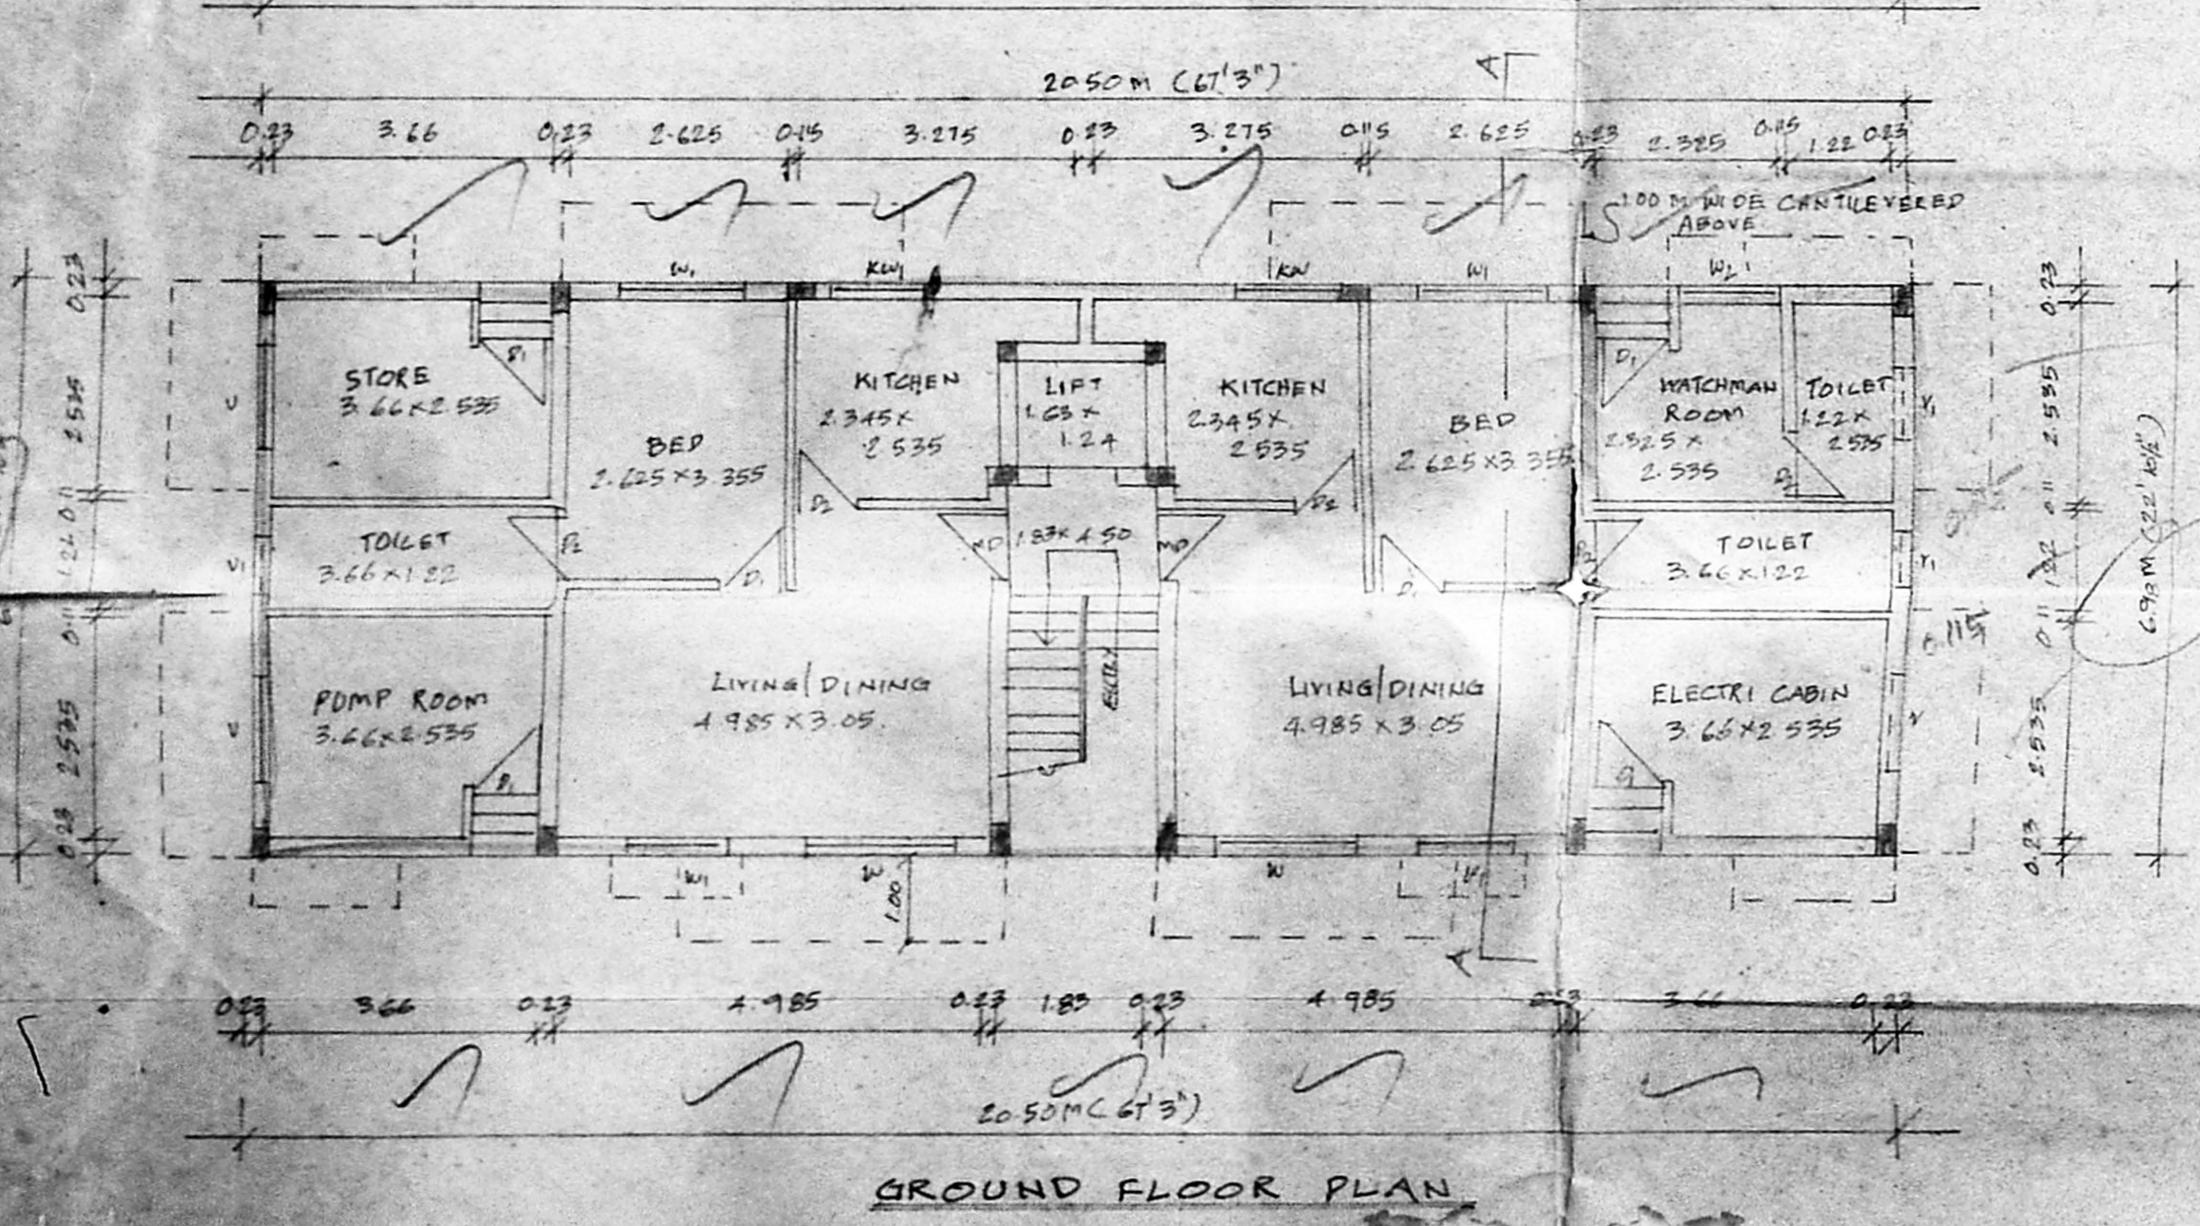 20.50 M (67'3")
A
0.23 3.66 0.23 2.625 0.115 3.275 0.23 3.275 0.115 2.625 0.23 2.325 0.115 1.22 0.23
1.00 M WIDE CANTILEVERED
ABOVE
W1 KW1 KW W1 W2
0.23 2.535 0.11 1.22 0.11 2.535 0.23
STORE
3.66 x 2.535
D1
BED
2.625 x 3.355
KITCHEN
2.345 x
2.535
D2
LIFT
1.63 x
1.24
KITCHEN
2.345 x
2.535
D2
BED
2.625 x 3.355
D1
WATCHMAN
ROOM
2.325 x
2.535
TOILET
1.22 x
2.535
D2
V1
TOILET
3.66 x 1.22
D2
D1
MD
1.83 x 4.50
MD
D1
TOILET
3.66 x 1.22
V1
V1
0.115
PUMP ROOM
3.66 x 2.535
D1
LIVING/DINING
4.985 x 3.05
LIVING/DINING
4.985 x 3.05
ELECTRI CABIN
3.66 x 2.535
0.23 2.535 0.11 1.22 0.11 2.535 0.23
6.98 M (22' 10½")
W1 W W
1.00
A
0.23 3.66 0.23 4.985 0.23 1.83 0.23 4.985 0.23 3.66 0.23
20.50M (67'3")
GROUND FLOOR PLAN